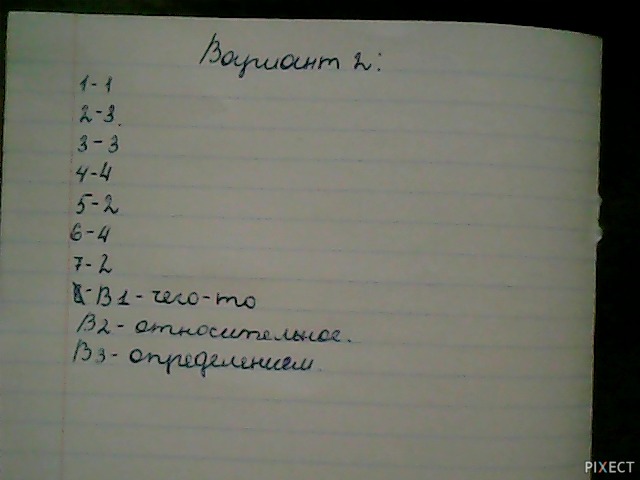 Вариант 2:
1-1
2-3.
3-3
4-4
5-2
6-4
7-2
В1-чего-то
В2-относительное.
В3-определением.
PIXECT